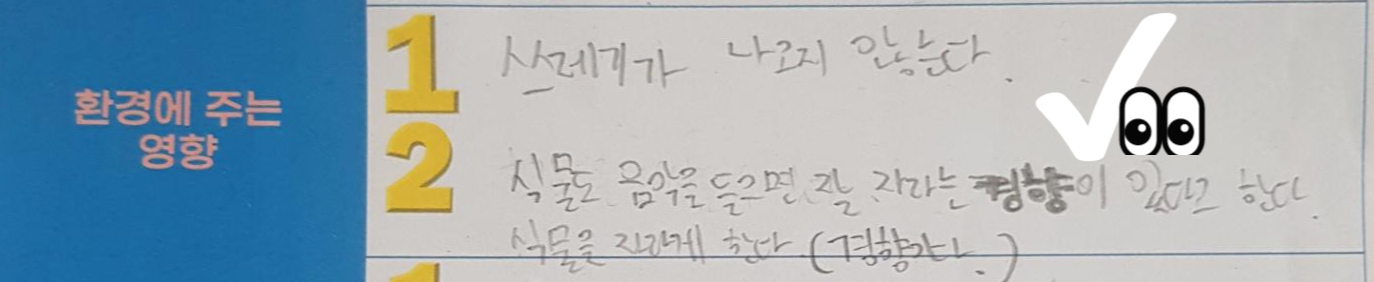 환경에 주는
영향
1 쓰레기가 나오지 않는다.
2 식물도 음악을 들으면 잘 자라는 경향이 있다고 한다.
식물을 자라게 한다 (경향
1